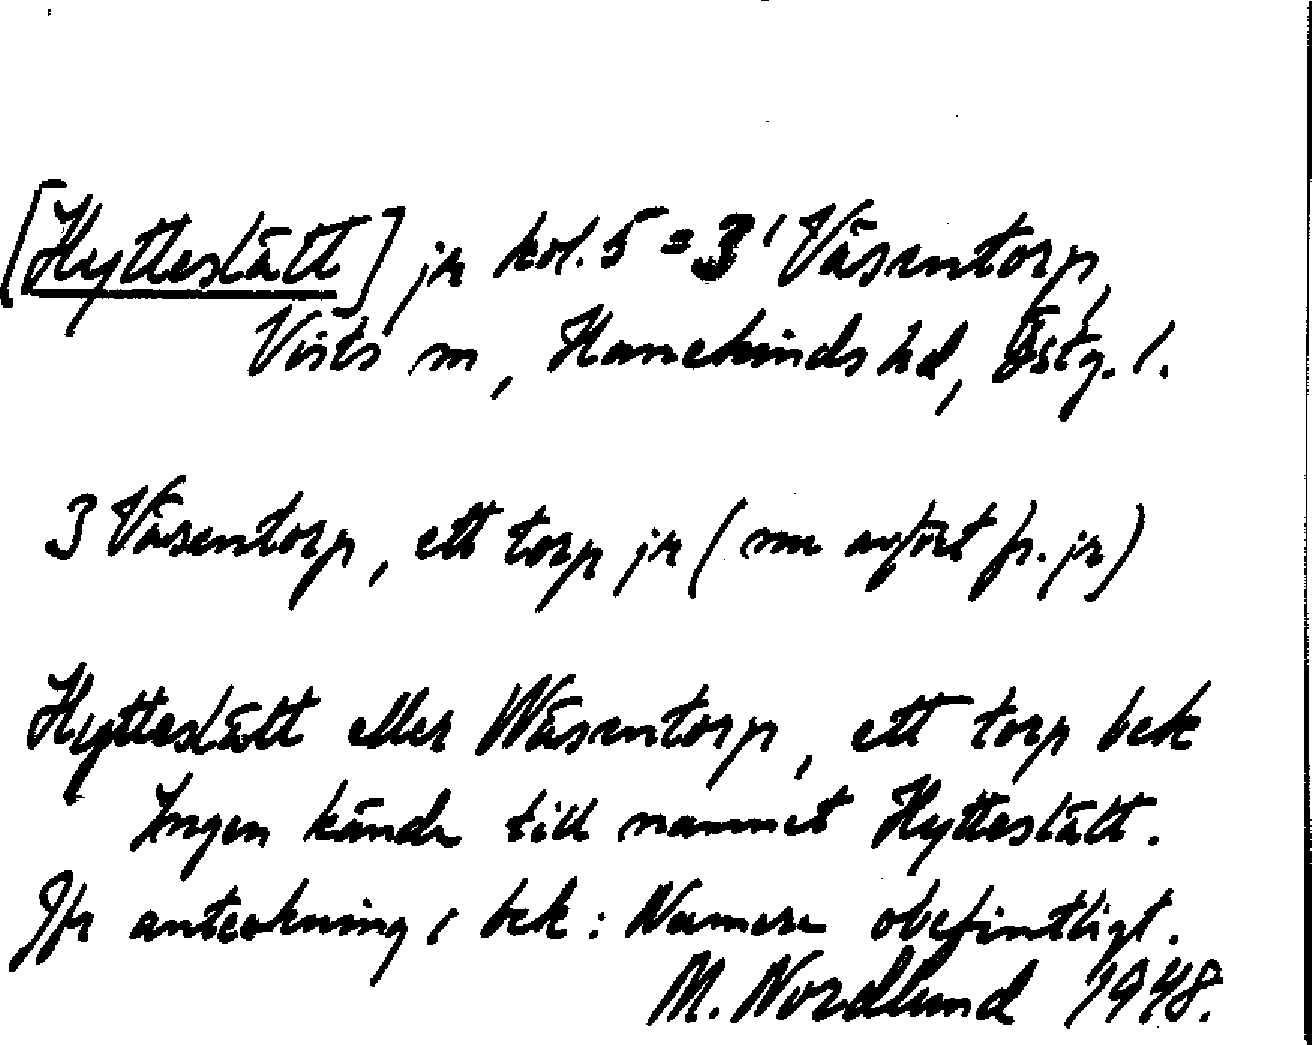 [Hyttestätt] jr kol. 5 = 3' Väsentorp,
Vists sn, Hanekinds hd, Östg. l.
3 Väsentorp, ett torp jr (nu avfört fr. jr)
Hyttestätt eller Wäsentorp, ett torp bek
Ingen kände till namnet Hyttestätt.
Jfr anteckning i bek: Numera obefintligt.
M. Nordlund 1948.